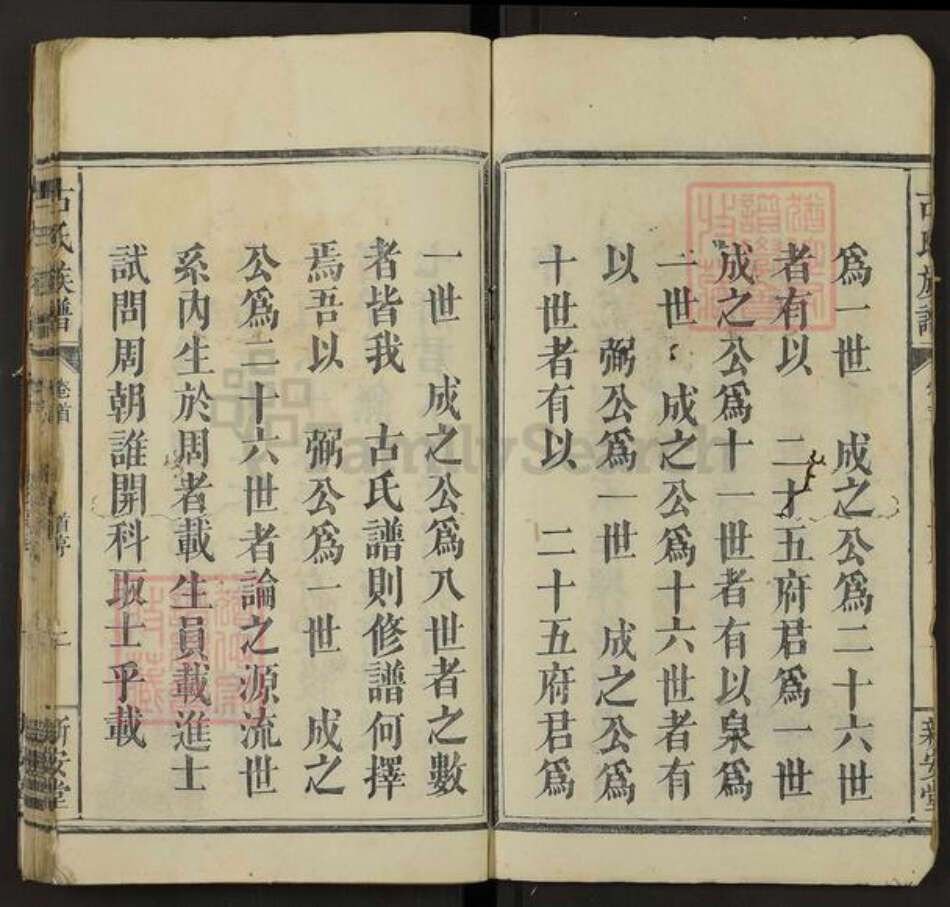 爲一世　成之公爲二十六世
者有以　二十五府君爲一世
成之公爲十一世者有以泉爲
一世　成之公爲十六世者有
以　弼公爲一世　成之公爲
十世者有以　二十五府君爲
一世　成之公爲八世者之數
者皆我　古氏譜則修譜何擇
焉吾以　弼公爲一世　成之
公爲二十六世者論之源流世
系內生於周者載生員載進士
試問周朝誰開科取士乎載
古氏族譜
卷首
首序
二
新安堂
古氏族譜
新安堂
FamilySearch